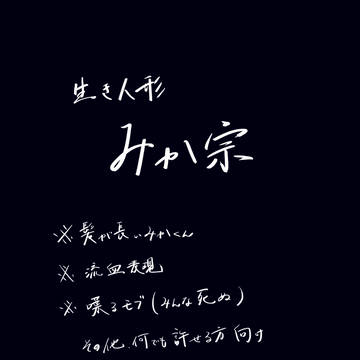 生き人形
みか宗
※髪が長いみかくん
※流血表現
※喋るモブ(みんな死ぬ)
その他、何でも許せる方向け